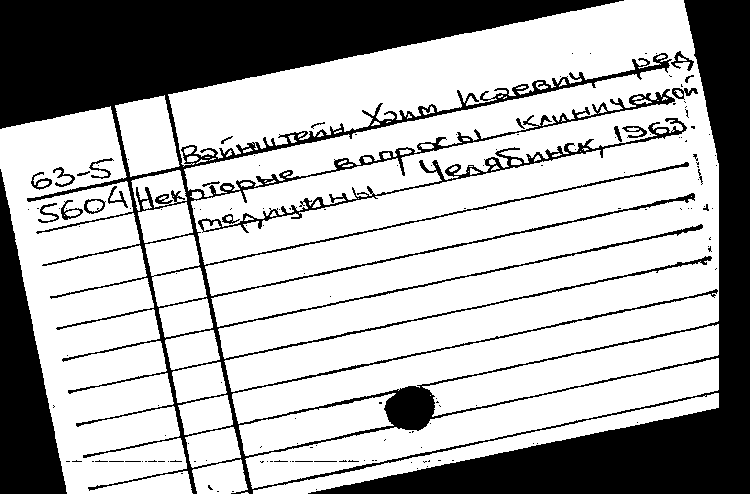 Вайнштейн, Хаим Исаевич, ред
63-5
5604 Некоторые вопросы клинической
медицины. Челябинск, 1963.